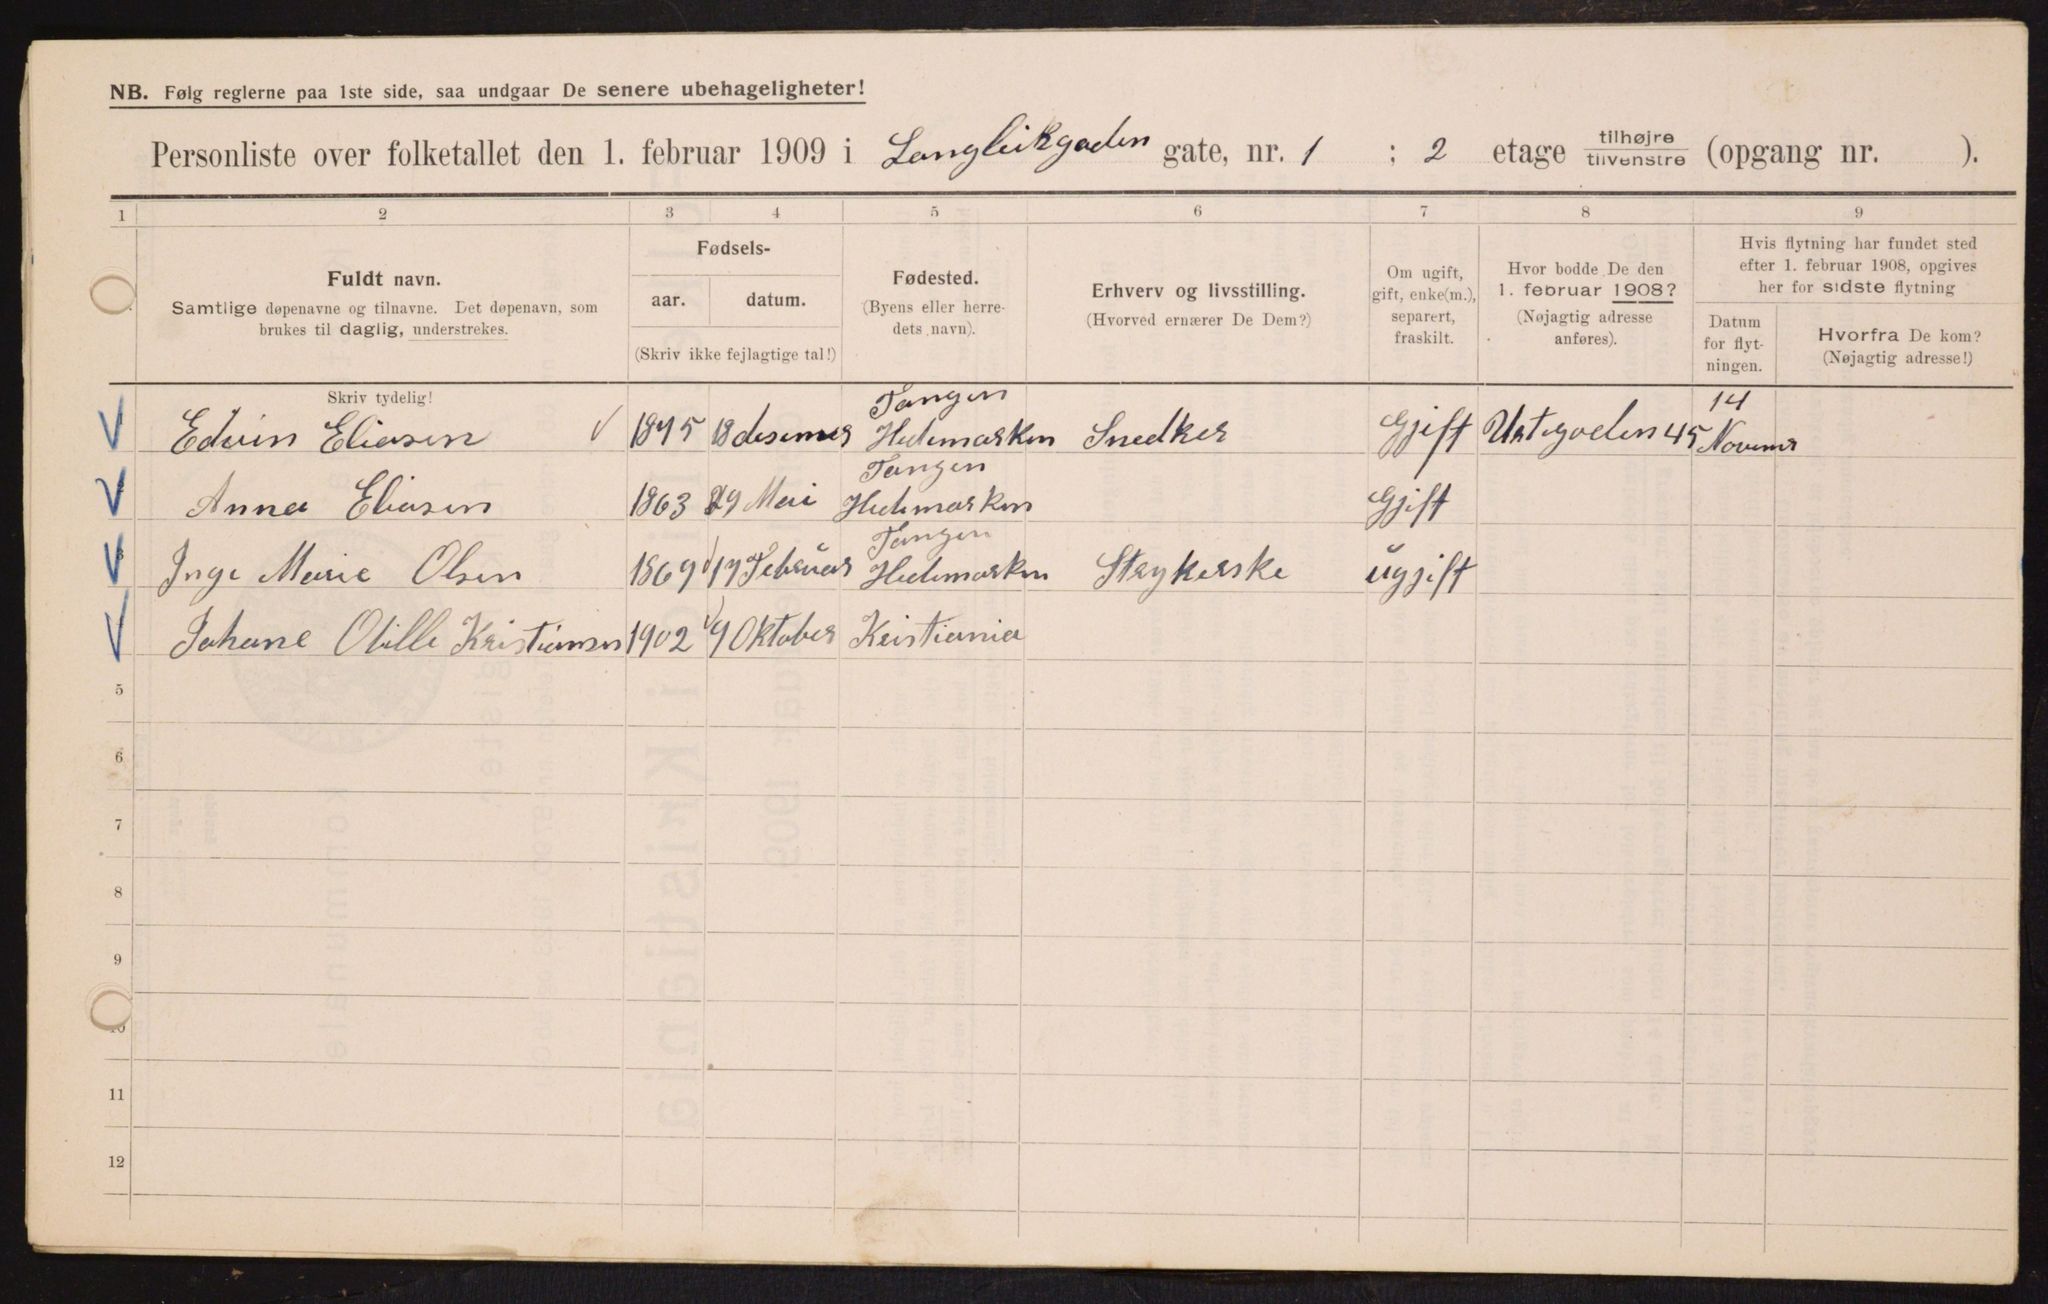 NB. Følg reglerne paa 1ste side, saa undgaar De senere ubehageligheter!
Personliste over folketallet den 1. februar 1909 i Langleikgaden gate, nr. 1 ; 2 etage tilhøjre/tilvenstre (opgang nr. ).
1 2 3 4 5 6 7 8 9
Fuldt navn.
Samtlige døpenavne og tilnavne. Det døpenavn, som
brukes til daglig, understrekes.
Fødsels-
aar. datum.
(Skriv ikke fejlagtige tal!)
Fødested.
(Byens eller herre-
dets navn).
Erhverv og livsstilling.
(Hvorved ernærer De Dem?)
Om ugift,
gift, enke(m.),
separert,
fraskilt.
Hvor bodde De den
1. februar 1908?
(Nøjagtig adresse
anføres).
Hvis flytning har fundet sted
efter 1. februar 1908, opgives
her for sidste flytning
Datum
for flyt-
ningen.
Hvorfra De kom?
(Nøjagtig adresse!)
Skriv tydelig!
Tangen 14
Edvin Eliasen 1875 18 desemer Hedemarken Snedker Gjift Urtegaden 45 Novemer
Tangen
Anna Eliasen 1863 29 Mai Hedemarken Gjift
Tangen
3 Inge Marie Olsen 1869 17 Februar Hedemarken Strykerske ugjift
Johane Otille Kristiansen 1902 9 Oktober Kristiania
5
6
7
8
9
10
11
12